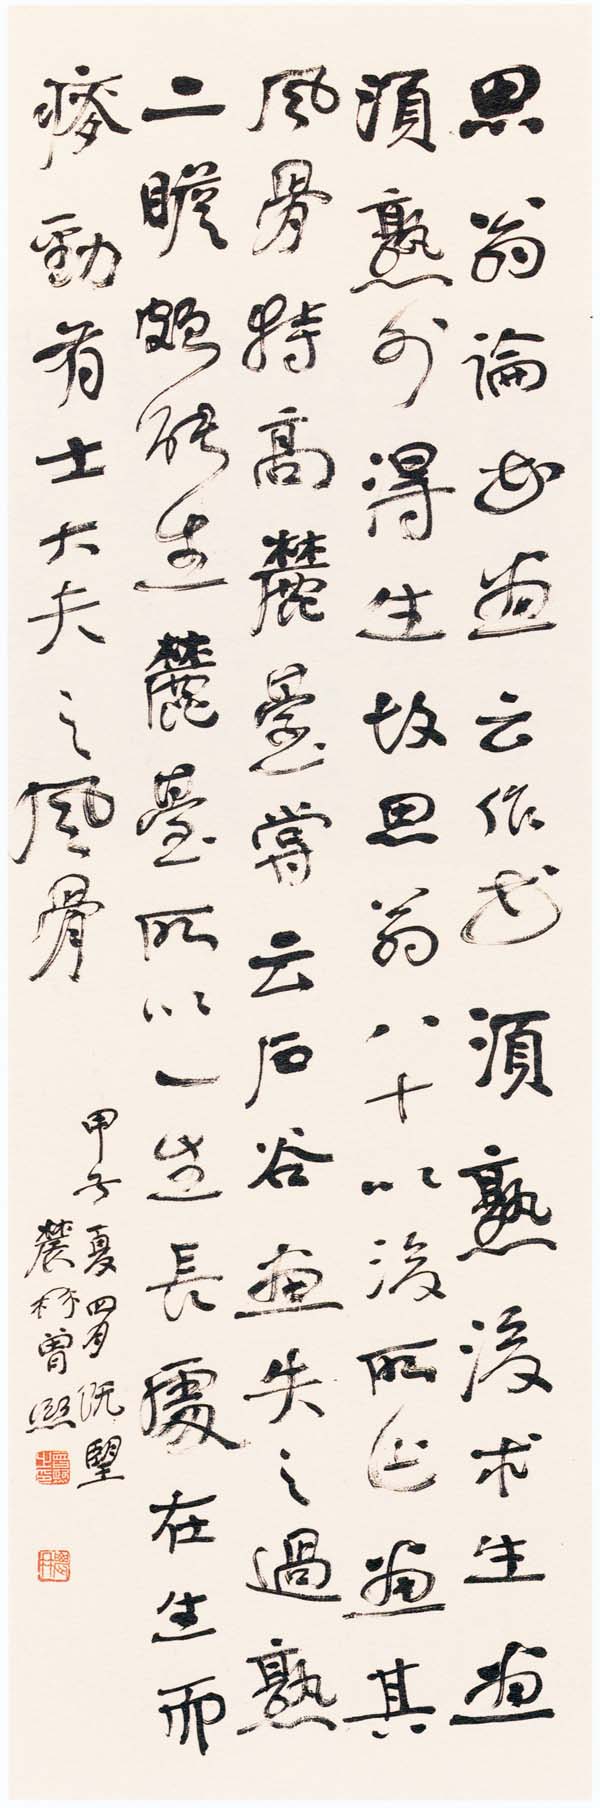 思翁論書畫云作書須熟後求生畫
須熟外得生故思翁八十以後所作畫其
風骨特高麓臺嘗云石谷畫失之過熟
二瞻頗能生麓臺所以一生長處在生而
瘦勁有士大夫之風骨
甲子夏四月既望
農髯曾熙